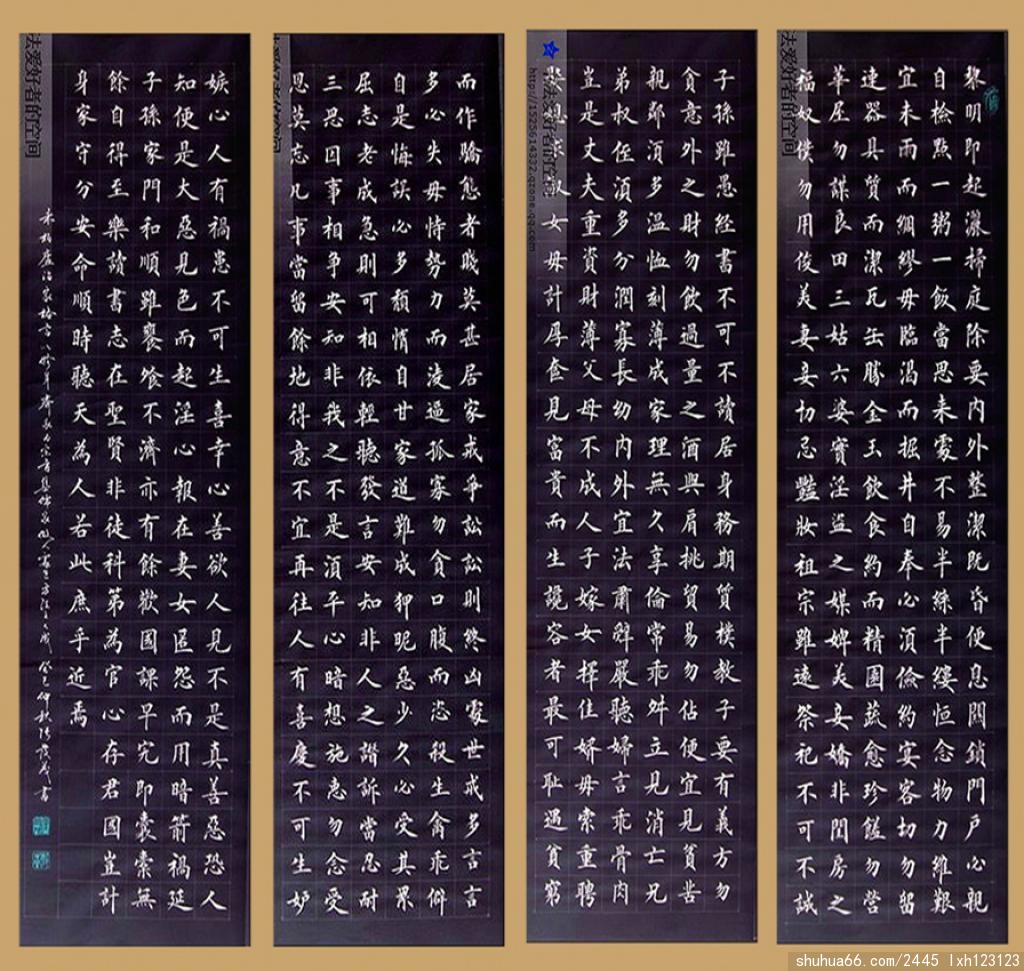 黎明即起灑掃庭除要内外整潔既昏便息關鎖門戶必親
自檢點一粥一飯當思来處不易半絲半縷恒念物力維艱
宜未雨而綢繆毋臨渴而掘井自奉必須儉約宴客切勿留
連器具質而潔瓦缶勝金玉飲食約而精園蔬愈珍饈勿營
華屋勿謀良田三姑六婆實淫盗之媒婢美妾嬌非閨房之
福奴僕勿用俊美妻妾切忌豔妝祖宗雖遠祭祀不可不誠
子孫雖愚經書不可不讀居身務期質樸教子要有義方勿
貪意外之財勿飲過量之酒與肩挑貿易勿佔便宜見貧苦
親鄰須多温恤刻薄成家理無久享倫常乖舛立見消亡兄
弟叔侄須多分潤寡長幼内外宜法肅辭嚴聽婦言乖骨肉
豈是丈夫重資財薄父母不成人子嫁女擇佳婿毋索重聘
女毋計厚奩見富貴而生讒容者最可耻遇貧窮
而作驕態者賤莫甚居家戒爭訟訟則終凶處世戒多言言
多必失毋恃勢力而凌逼孤寡勿貪口腹而恣殺生禽乖僻
自是悔誤必多頹惰自甘家道難成狎昵惡少久必受其累
屈志老成急則可相依輕聽發言安知非人之譖訴當忍耐
三思因事相争安知非我之不是須平心暗想施惠勿念受
恩莫忘凡事當留餘地得意不宜再往人有喜慶不可生妒
嫉心人有禍患不可生喜幸心善欲人見不是真善惡恐人
知便是大惡見色而起淫心報在妻女匿怨而用暗箭禍延
子孫家門和順雖饔飧不濟亦有餘歡國課早完即囊橐無
餘自得至樂讀書志在聖賢非徒科第為官心存君國豈計
身家守分安命順時聽天為人若此庶乎近焉
朱柏廬治家格言
癸巳仲秋 書
法爱好者的空间]
http://1525614332.qzone.qq.com
shuhua66.com/2445 lxh123123